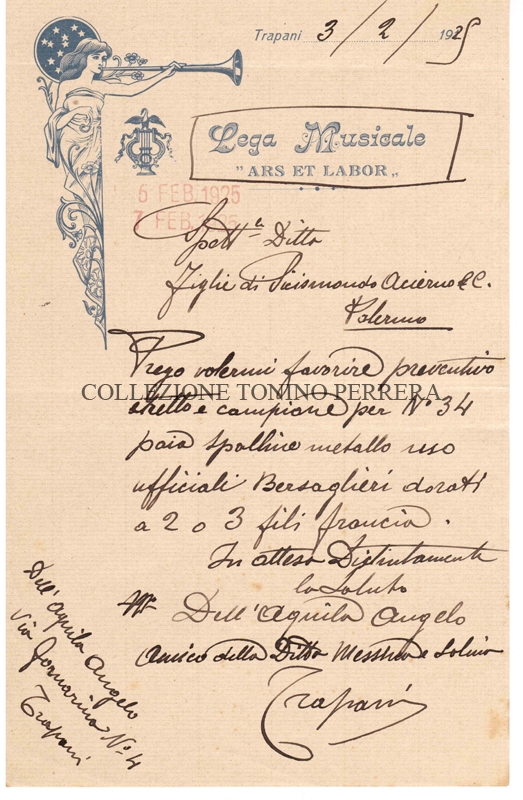 Trapani 3/2/1925
Lega Musicale
"ARS ET LABOR„
6 FEB. 1925
7 FEB.
Spett.le Ditta
Figlie di Acierno & C.
Palermo
Prego volermi favorire preventivo
COLLEZIONE TONINO PERRERA
stretto e campione per N° 34
paia spalline metallo uso
ufficiali Bersaglieri dorati
a 2 o 3 fili francia.
In attesa Distintamente
la saluto
Dell'Aquila Angelo
Amico della Ditta Messina e
Trapani
Dell'Aquila Angelo
Via N° 4
Trapani